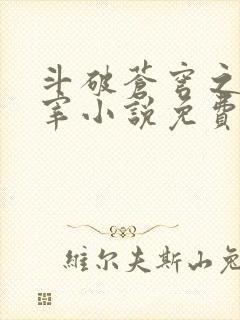 斗破蒼穹之
宰小說免費
維尔夫斯山兔